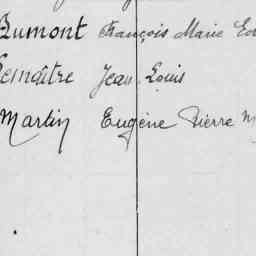 Dumont François Marie
Lemaître Jean Louis
Martin Eugène Pierre